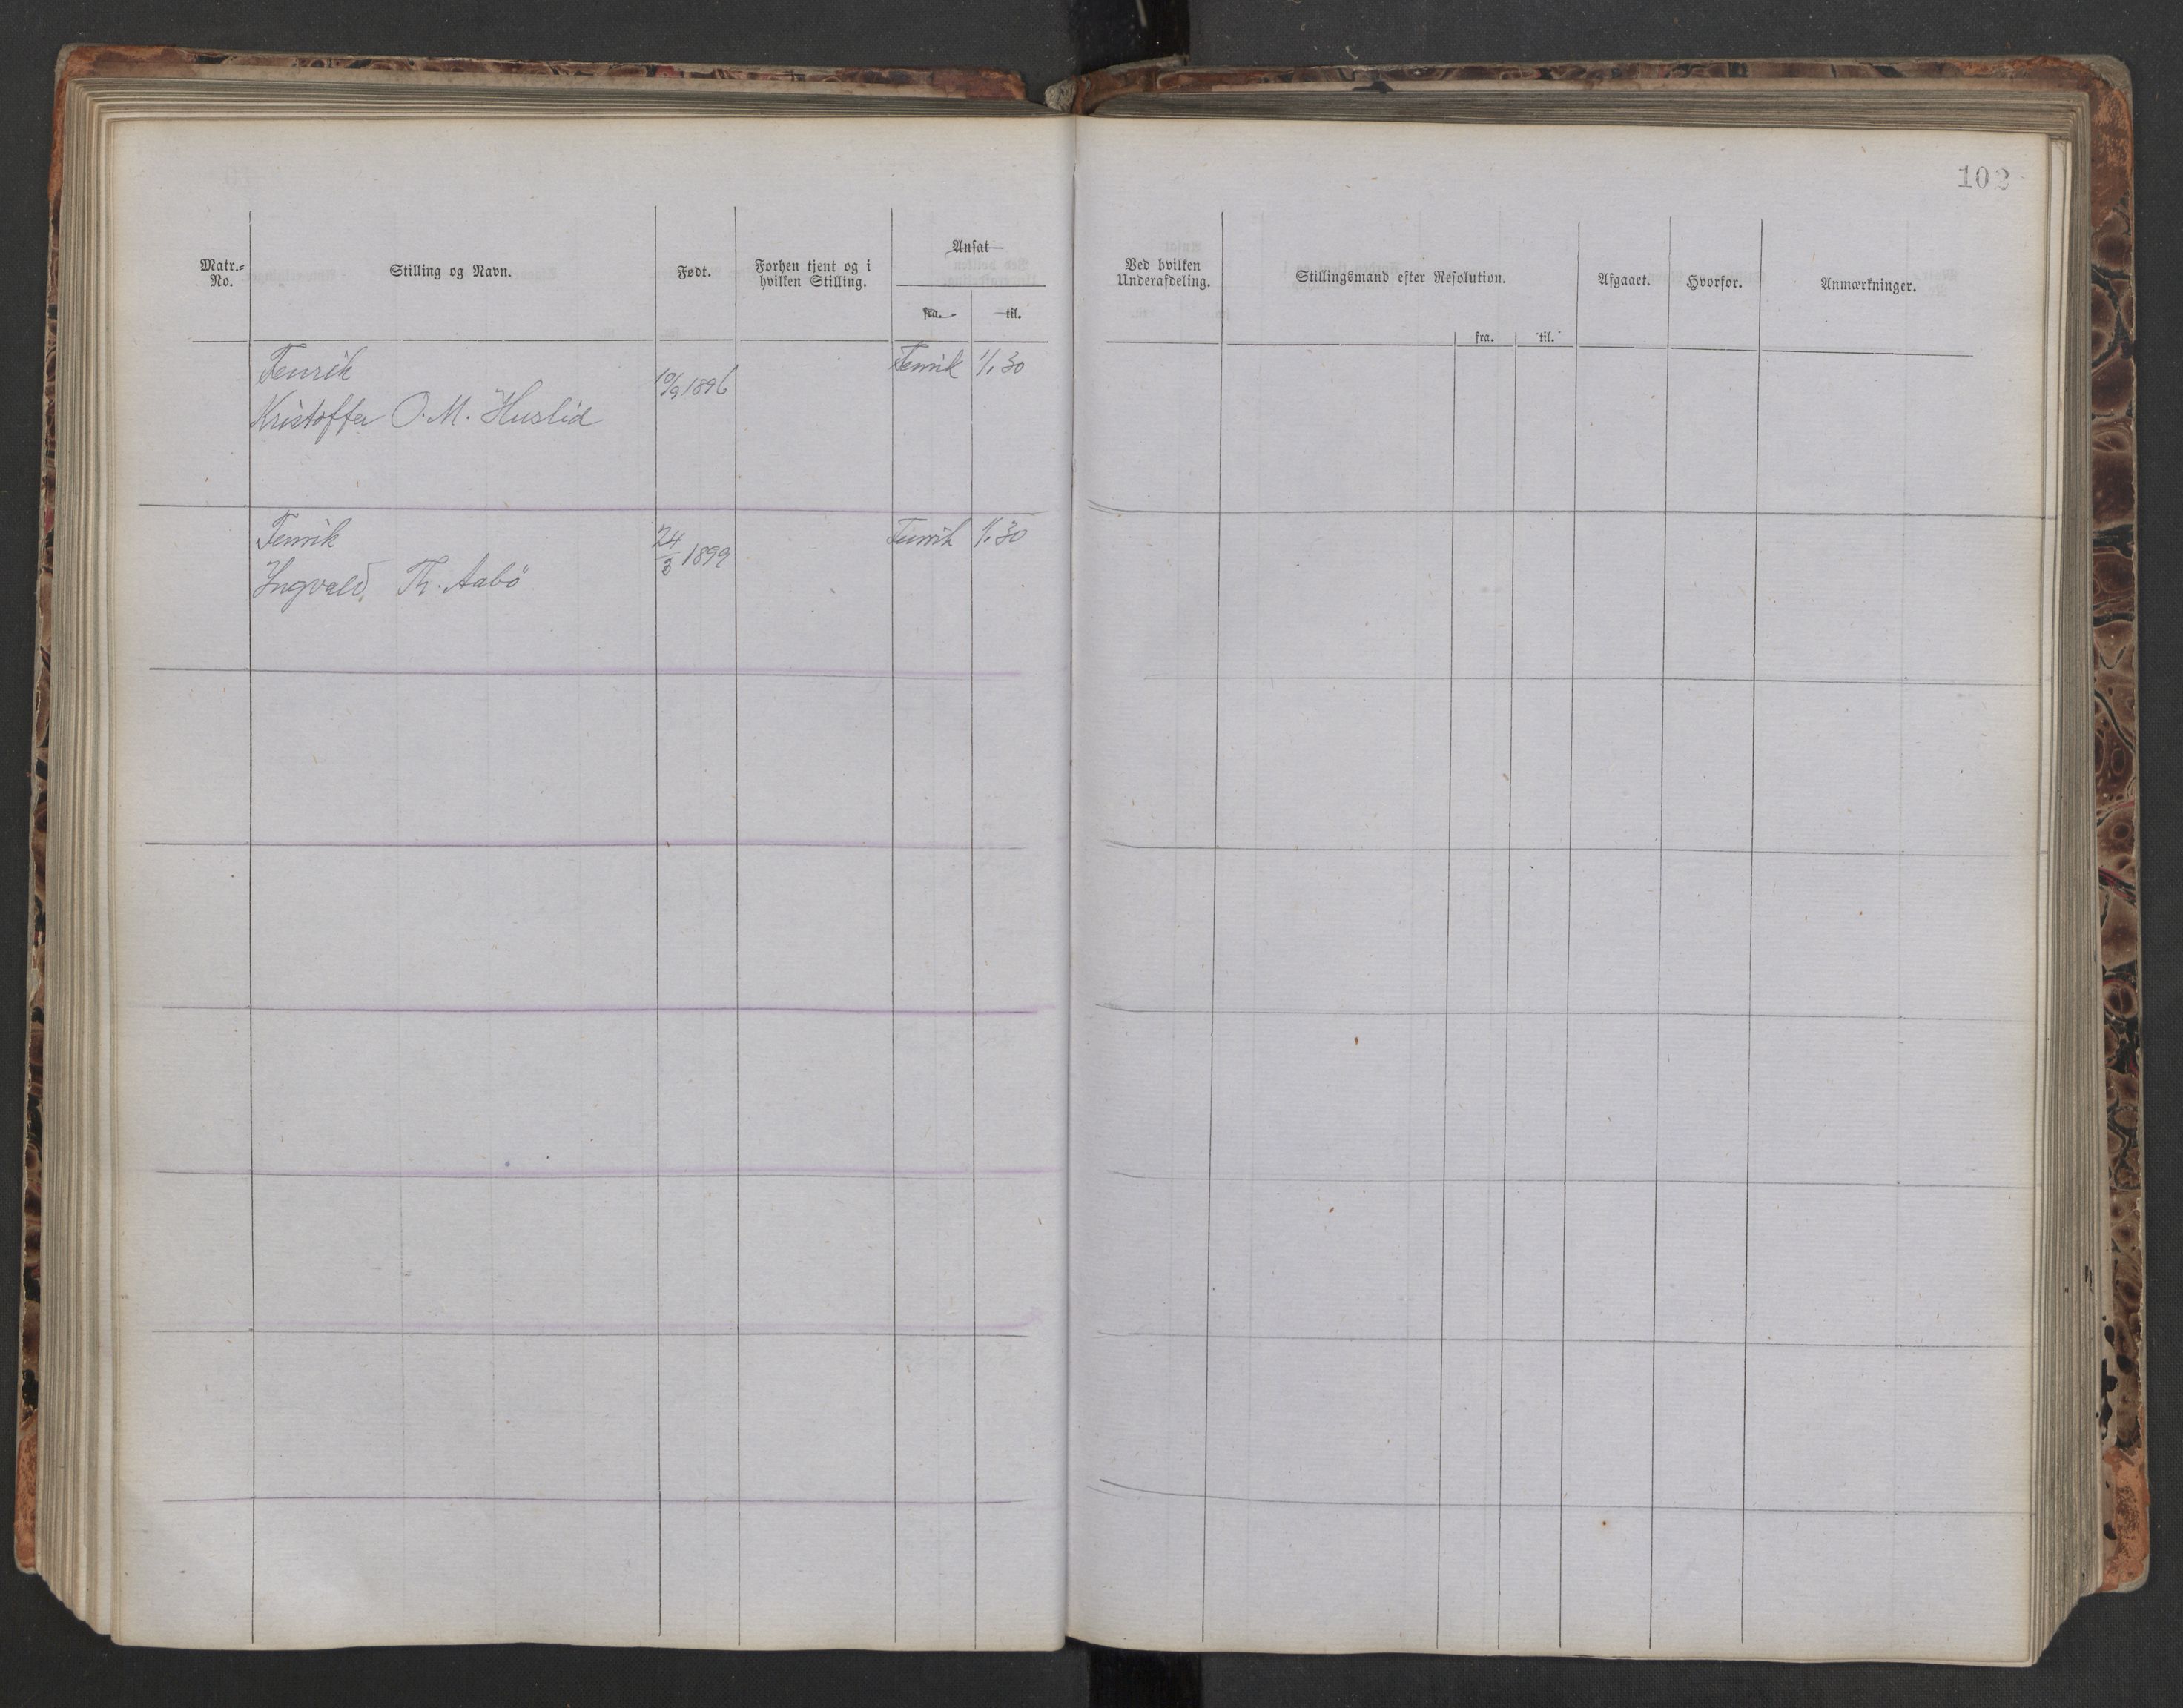 102
Matr.=
No.
Stilling og Navn.
Født.
Forhen tjent og i
hvilken Stilling.
Ansat
fra.
til.
Ved hvilken
Underafdeling.
Stillingsmand efter Resolution.
fra.
til.
Afgaaet.
Hvorfor.
Anmærkninger.
Fenrik
Kristoffer O. M. Huslid
10/9 1896
Fenrik
1/1 30
Fenrik
Ingvald Th. Aabö
24/3 1899
Fenrik
1/1 30